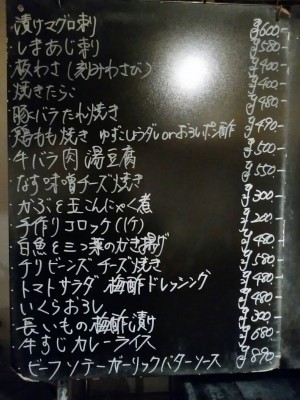 漬けマグロ刺 ¥600-
しまあじ刺 ¥580-
板わさ(刻みわさび) ¥400-
焼きたらこ ¥400-
豚バラたれ焼き ¥480-
鶏もも焼き ゆずこしょうダレorおろしポン酢 ¥490-
牛バラ肉湯豆腐 ¥500-
なす味噌チーズ焼き ¥550-
かぶと玉こんにゃく煮 ¥300-
手作りコロッケ(1ケ) ¥200-
白魚と三つ葉のかき揚げ ¥480-
チリビーンズチーズ焼き ¥580-
トマトサラダ 梅酢ドレッシング ¥480-
いくらおろし ¥480-
長いもの梅酢漬け ¥300-
牛すじカレーライス ¥680-
ビーフソテーガーリックバターソース ¥890-